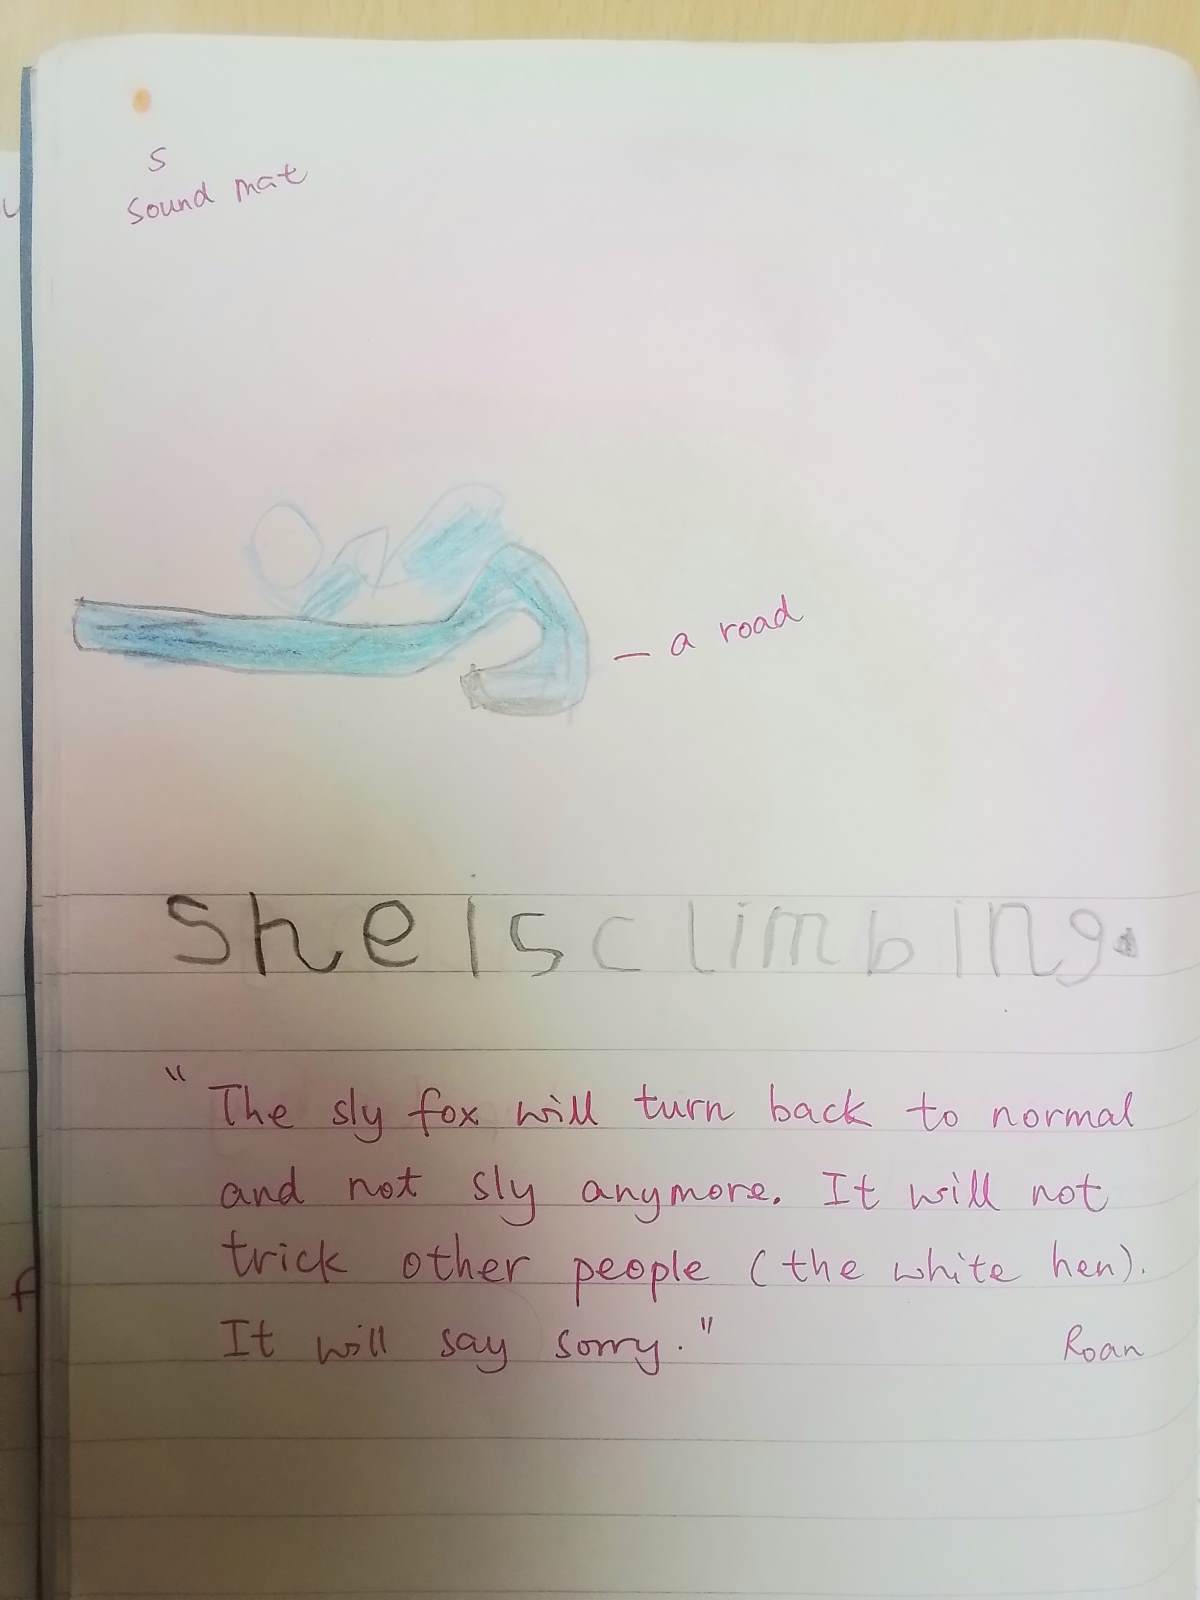 S
Sound mat
— a road
She is climbing.
"The sly fox will turn back to normal
and not sly anymore. It will not
trick other people (the white hen).
It will say sorry."
Roan
f